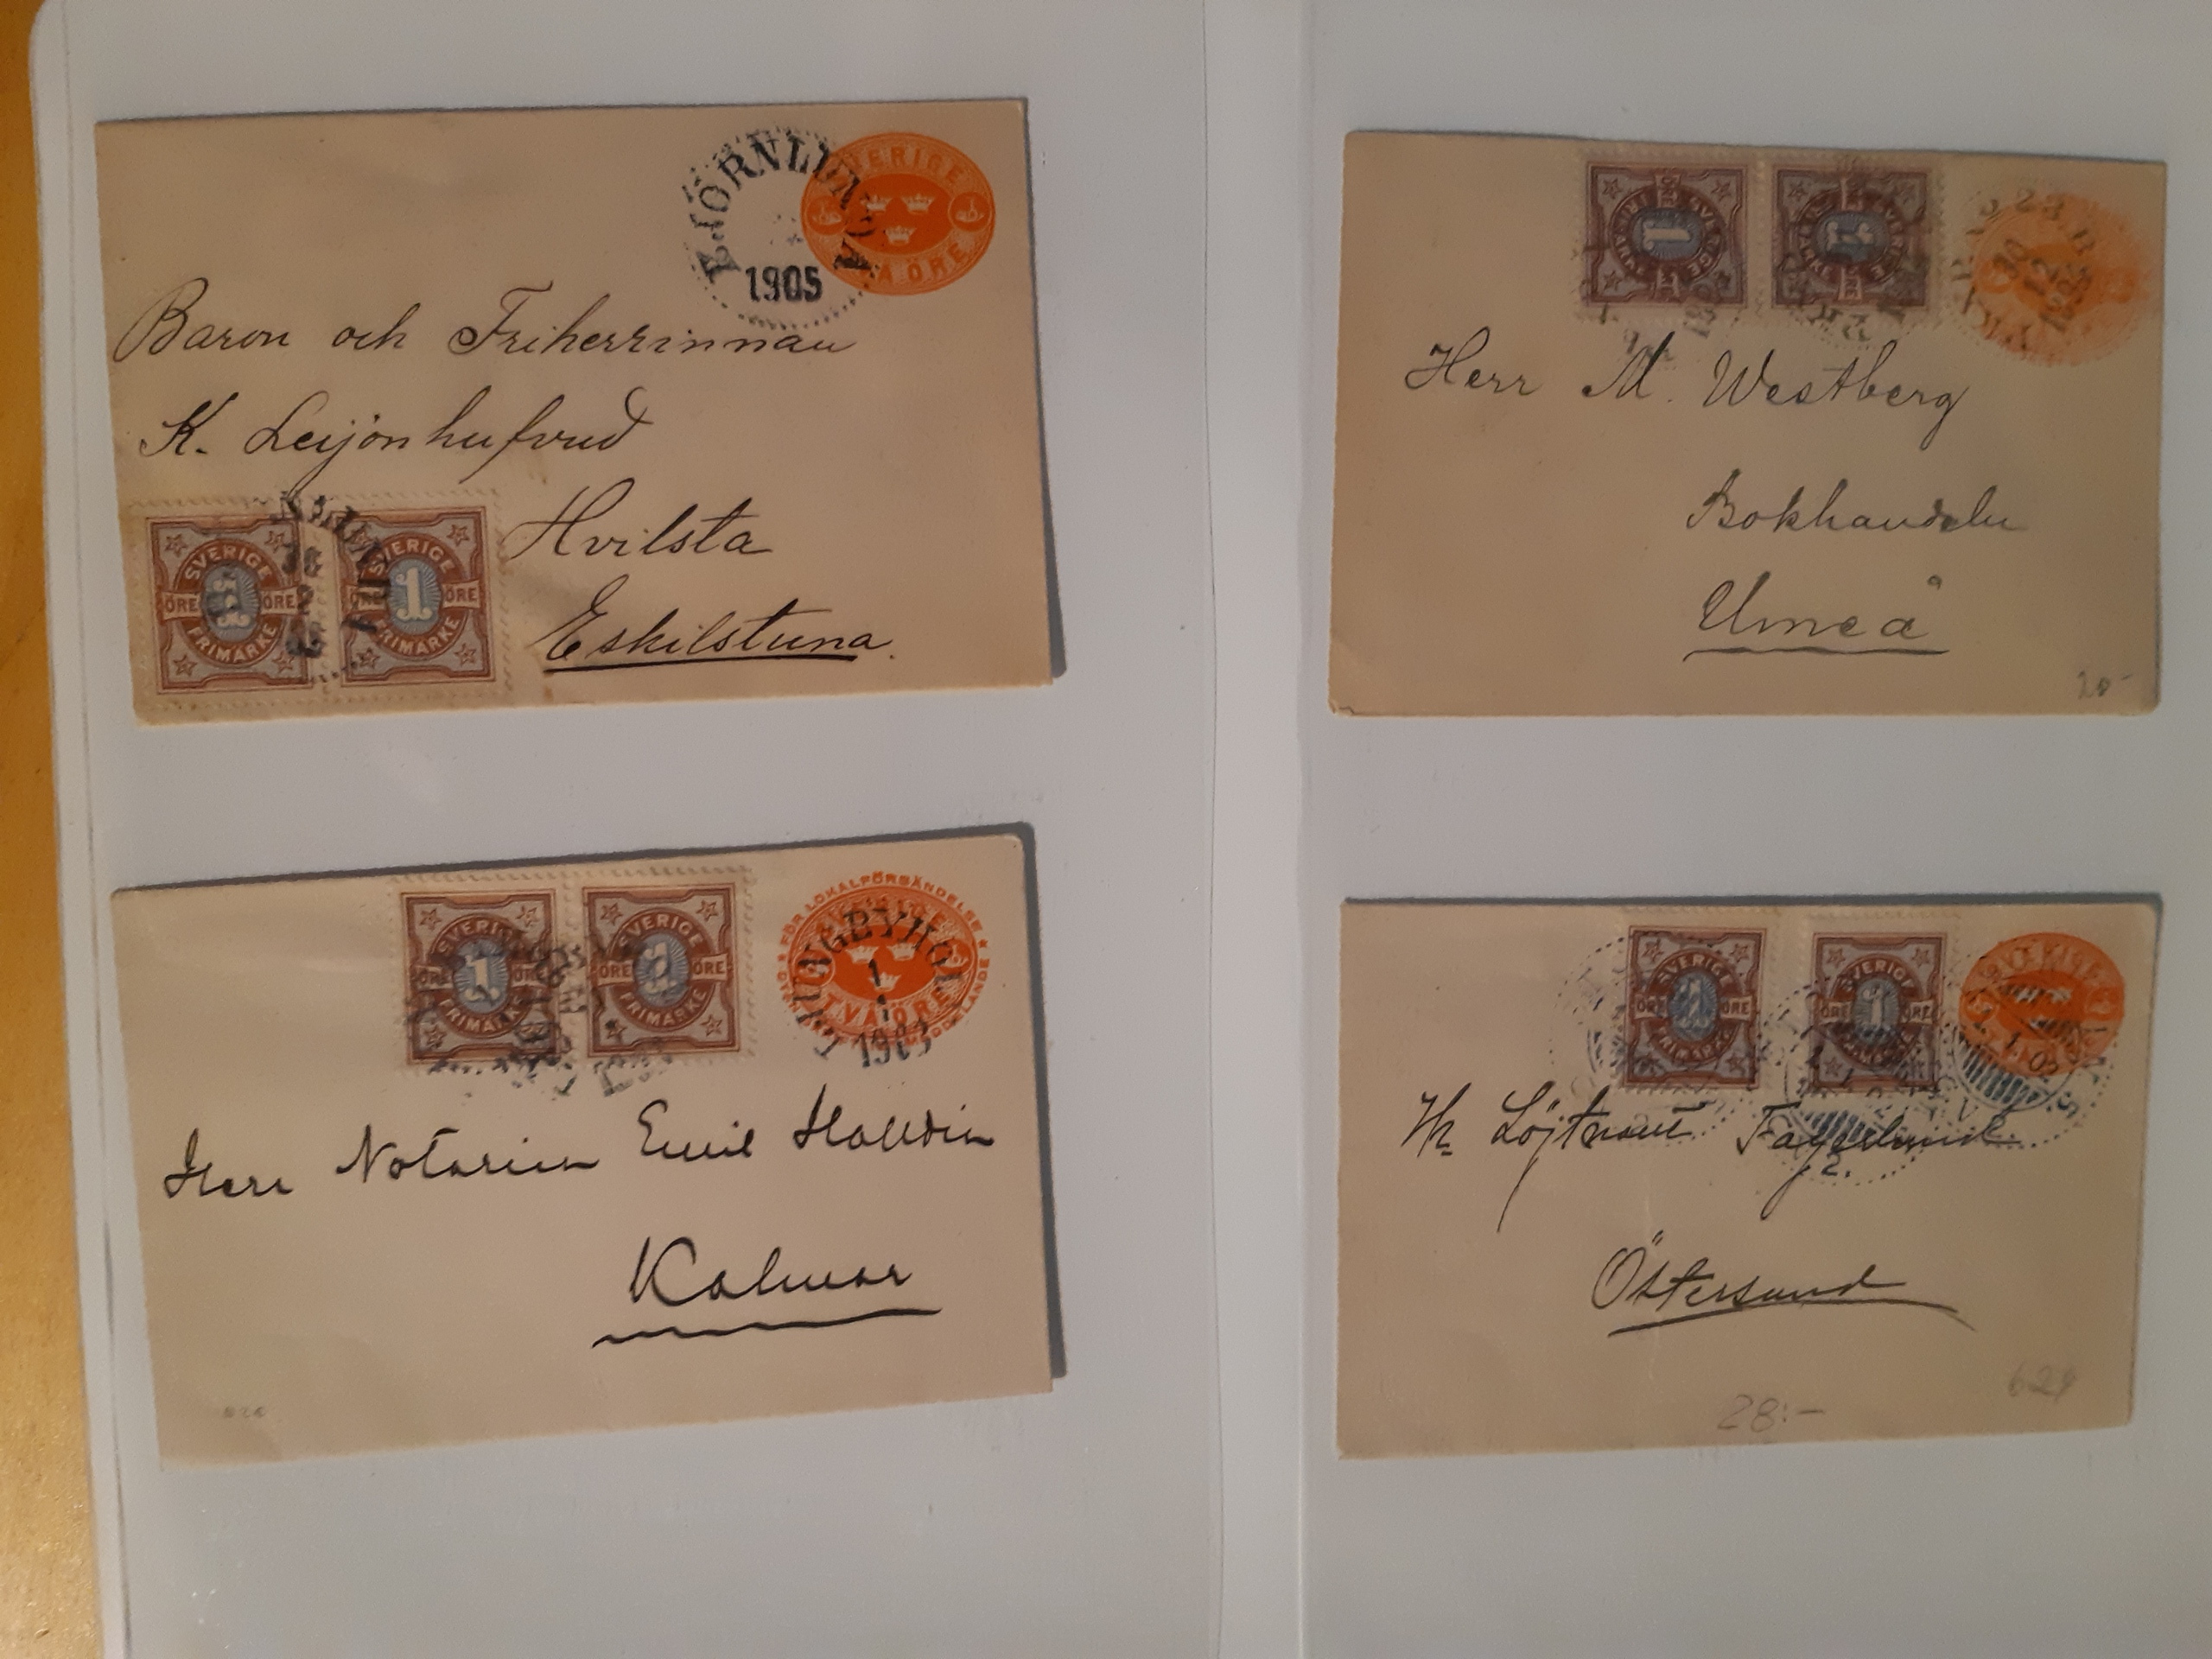 BJÖRNLUNDA
1905
SVERIGE
ÖRE
Baron och Friherrinnan
K. Leijonhufvud
Hvilsta
Eskilstuna.
SVERIGE
ÖRE 1 ÖRE
FRIMÄRKE
SVERIGE
1 ÖRE
FRIMÄRKE
SVERIGE
ÖRE 1 ÖRE
FRIMÄRKE
SVERIGE
ÖRE 1 ÖRE
FRIMÄRKE
FÖR LOKALFÖRSÄNDELSE
TVÅ ÖRE
LJUNGBYHOLM
1
1
Herr Notarien Emil Halldin
Kalmar
SVERIGE
1
FRIMÄRKE
1
30
12
Herr M. Westberg
Bokhandeln
Umeå
20-
SVERIGE
ÖRE 1 ÖRE
FRIMÄRKE
SVERIGE
ÖRE 1 ÖRE
Hr Löjtnant Fagerlund.
Östersund
28:-